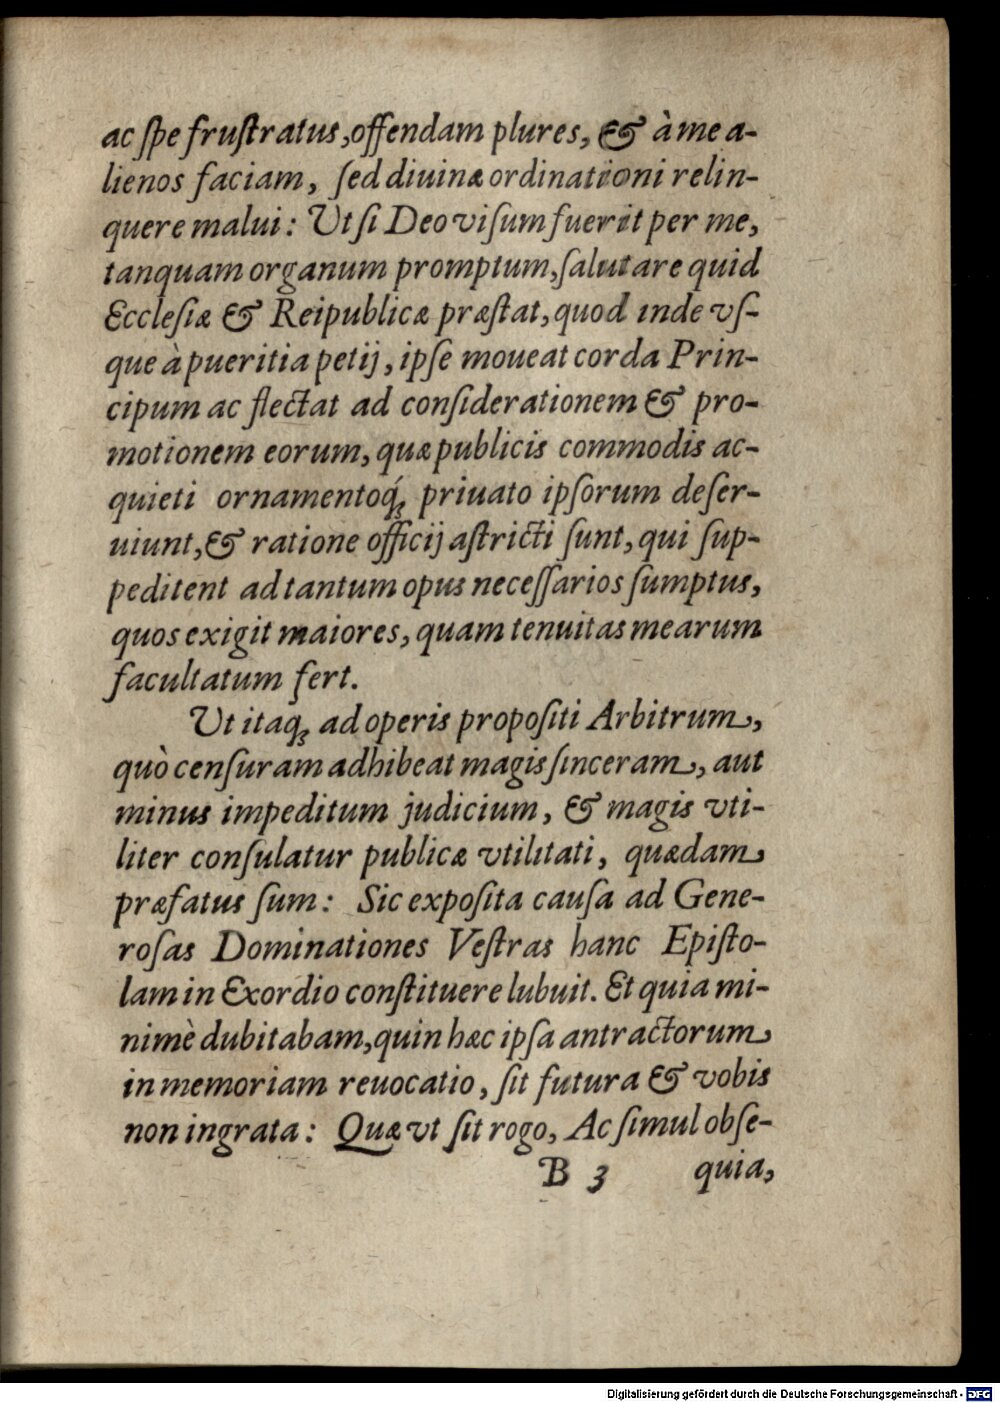 ac ſpe fruſtratus, offendam plures, & à me a-
lienos faciam, ſed diuinæ ordinationi relin-
quere malui: Ut ſi Deo viſum fuerit per me,
tanquam organum promptum, ſalutare quid
Eccleſiæ & Reipublicæ præſtat, quod inde vſ-
que à pueritia petij, ipſe moueat corda Prin-
cipum ac flectat ad conſiderationem & pro-
motionem eorum, quæ publicis commodis ac-
quieti ornamentoq́; priuato ipſorum deſer-
uiunt, & ratione officij aſtricti ſunt, qui ſup-
peditent ad tantum opus neceſſarios ſumptus,
quos exigit maiores, quam tenuitas mearum
facultatum fert.
Ut itaq; ad operis propoſiti Arbitrum,
quò cenſuram adhibeat magis ſinceram, aut
minus impeditum judicium, & magis vti-
liter conſulatur publicæ vtilitati, quædam
præfatus ſum: Sic expoſita cauſa ad Gene-
roſas Dominationes Veſtras hanc Epiſto-
lam in Exordio conſtituere lubuit. Et quia mi-
nimè dubitabam, quin hæc ipſa antractorum
in memoriam reuocatio, ſit futura & vobis
non ingrata: Quæ vt ſit rogo, Ac ſimul obſe-
B 3 quia,
Digitalisierung gefördert durch die Deutsche Forschungsgemeinschaft - DFG